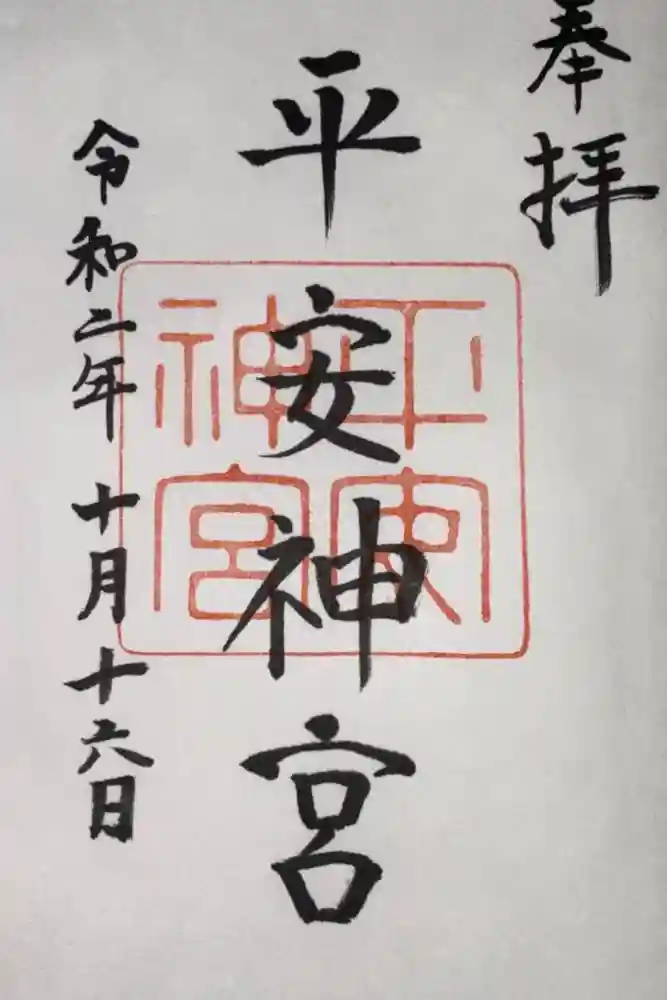 奉拝
平安神宮
平安神宮
令和二年 十月十六日